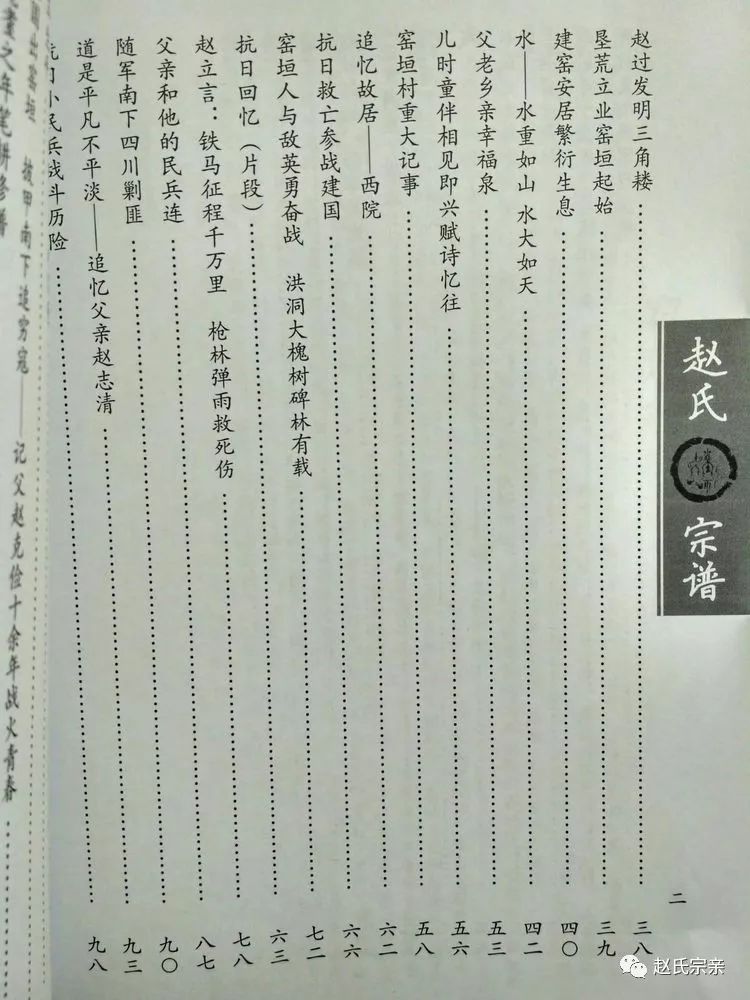 赵氏宗谱
二
赵过发明三角耧 三八
垦荒立业窑垣起始 三九
建窑安居繁衍生息 四〇
水——水重如山 水大如天 四二
父老乡亲幸福泉 五三
儿时童伴相见即兴赋诗忆往 五六
窑垣村重大记事 五八
追忆故居——西院 六二
抗日救亡参战建国 六六
窑垣人与敌英勇奋战 洪洞大槐树碑林有载 七二
抗日回忆（片段） 六三
赵立言：铁马征程千万里 枪林弹雨救死伤 七八
父亲和他的民兵连 八七
随军南下四川剿匪 九〇
道是平凡不平淡——追忆父亲赵志清 九三
小民兵战斗历险 九八
窑垣 披甲南下追穷寇——记父赵克俭十余年战火青春
赵氏宗亲